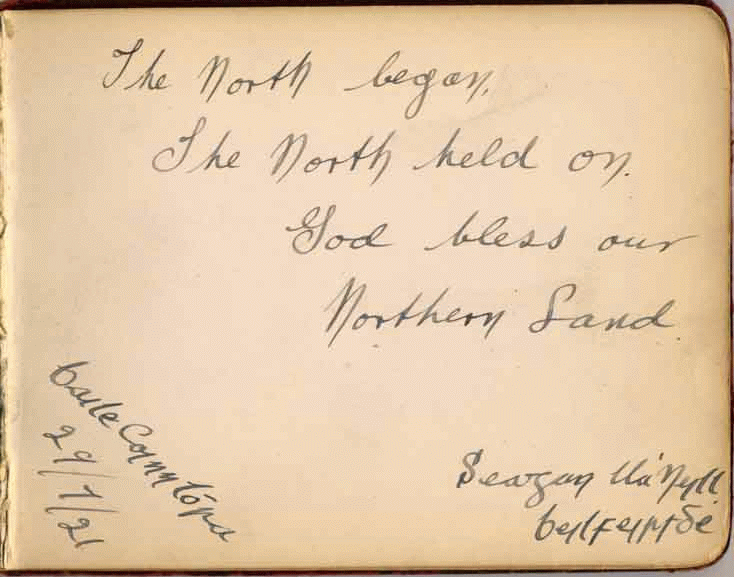 The North began,
The North held on.
God bless our
Northern Land.
baile Coinnlóra
29/7/21
Seagan Ua Neill
beilfeirsdé